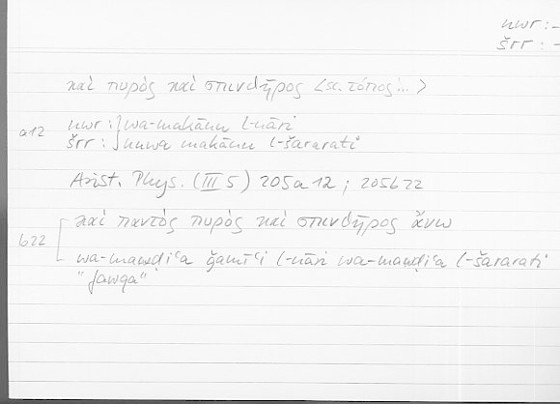 nwr :-
šrr : -
καὶ πυρὸς καὶ σπινθῆρος <sc. τόπος ...>
a12 nwr : } wa-makānu l-nāri
šrr : } huwa makānu l-šararati
Arist. Phys. (III 5) 205a12 ; 205b22
b22 καὶ παντὸς πυρὸς καὶ σπινθῆρος ἄνω
wa-mawḍiʿa ǧamīʿi l-nāri wa-mawḍiʿa l-šararati
"fawqa"